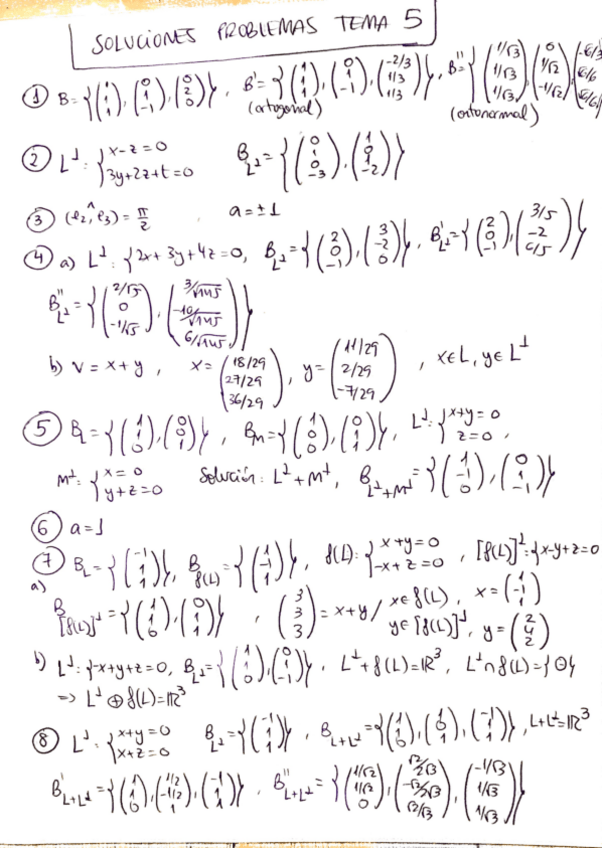 SOLUCIONES PROBLEMAS TEMA 5
① B={(1 1 1),(0 1 -1),(0 2 0)}, B'={(1 1 1),(0 1 -1),(-2/3 1/3 1/3)}, B''={(1/√3 1/√3 1/√3),(0 1/√2 -1/√2),
(ortogonal) (ortonormal)
② L⊥:{x-z=0 3y+2z+t=0 B_L⊥={(0 1 0 -3),(1 0 1 -2)}
③ (e₂,^e₃)=π/2 , a=±1
④ a) L⊥:{2x+3y+4z=0, B_L⊥={(2 0 -1),(3 -2 0)}, B'_L⊥={(2 0 -1),(3/5 -2 6/5)}
B''_L⊥={(2/√5 0 -1/√5),(3/√145 -10/√145 6/√145)}
b) v=x+y, x=(18/29 27/29 36/29), y=(11/29 2/29 -7/29), x∈L, y∈L⊥
⑤ B_L={(1 1 0),(0 0 1)}, B_M={(1 0 0),(0 1 1)}, L⊥:{x+y=0 z=0,
M⊥:{x=0 y+z=0 Solución: L⊥+M⊥, B_L⊥+M⊥={(1 -1 0),(0 1 -1)}
⑥ a=1
⑦ B_L={(-1 1 1)}, B_f(L)={(1 -1 1)}, f(L):{x+y=0 -x+z=0, [f(L)]⊥:{x-y+z=0
a) B_[f(L)]⊥={(1 1 0),(0 1 1)}, (3 3 3)=x+y/ x∈f(L), x=(1 -1 1) y∈[f(L)]⊥, y=(2 4 2)
b) L⊥:{-x+y+z=0, B_L⊥={(1 1 0),(0 1 -1)}, L⊥+f(L)=ℝ³, L⊥∩f(L)={Θ}
⇒ L⊥⊕f(L)=ℝ³
⑧ L⊥:{x+y=0 x+z=0 B_L⊥={(-1 1 1)}, B_L+L⊥={(1 1 0),(1 0 1),(-1 1 1)}, L+L⊥=ℝ³
B'_L+L⊥={(1 1 0),(1/2 -1/2 1),(-1 1 1)}, B''_L+L⊥={(1/√2 1/√2 0),(√2/2√3 -√2/2√3 √2/√3),(-1/√3 1/√3 1/√3)}